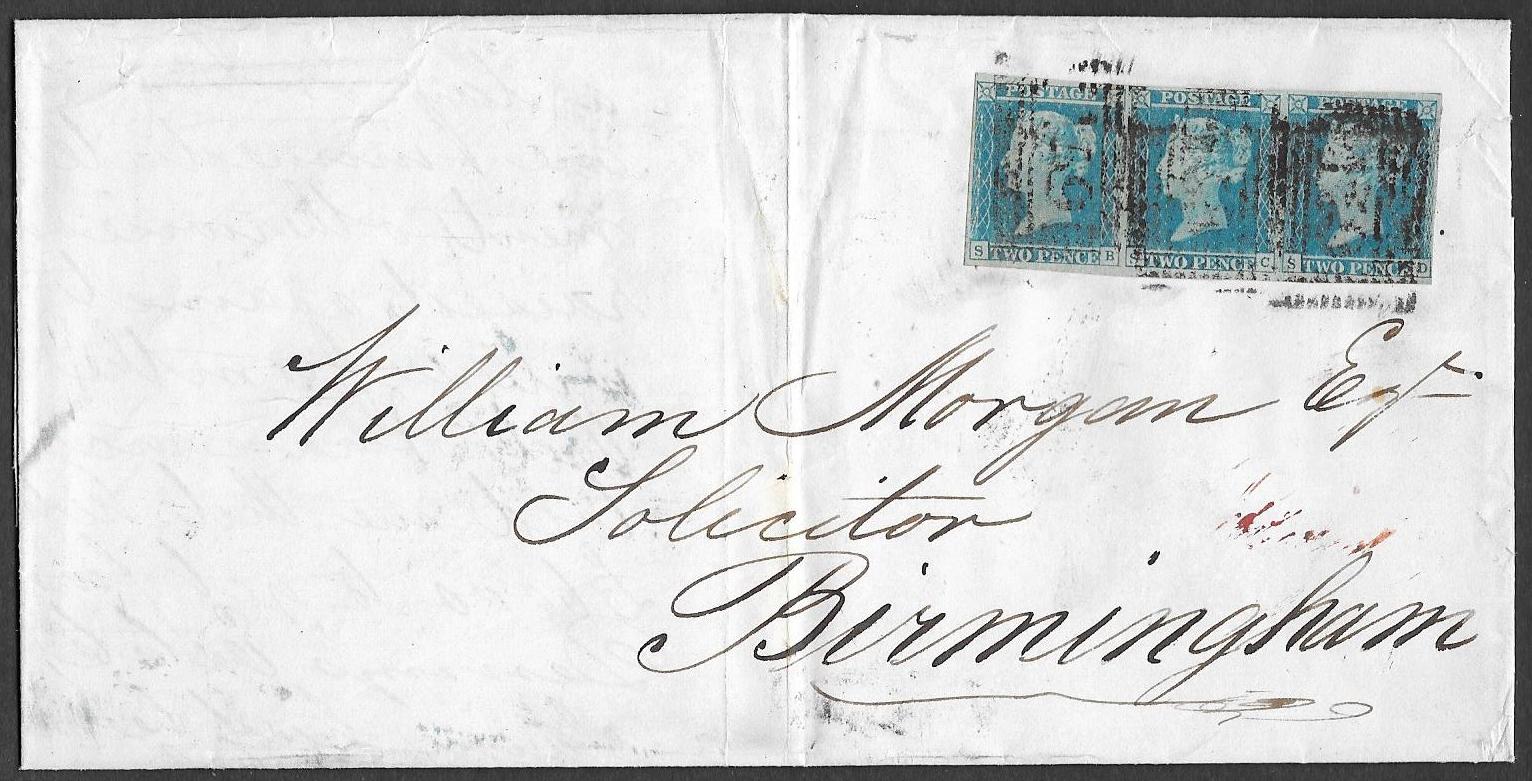 POSTAGE POSTAGE POSTAGE
S TWO PENCE B S TWO PENCE C S TWO PENCE D
William Morgan Esqr
Solicitor
Birmingham